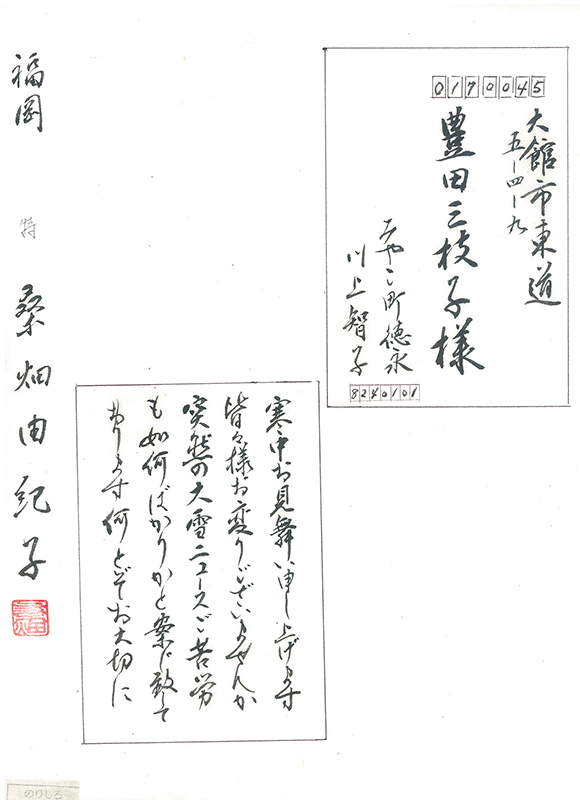 0170045
大館市東道
五ー四ー九
豊田三枝子様
みやこ町徳永
川上智子
8240101
寒中お見舞い申し上げます
皆々様お変りございませんか
突然の大雪ニュースご苦労
も如何ばかりかと案じ致して
おります何とぞお大切に
福岡 特 桑畑由紀子
のりしろ